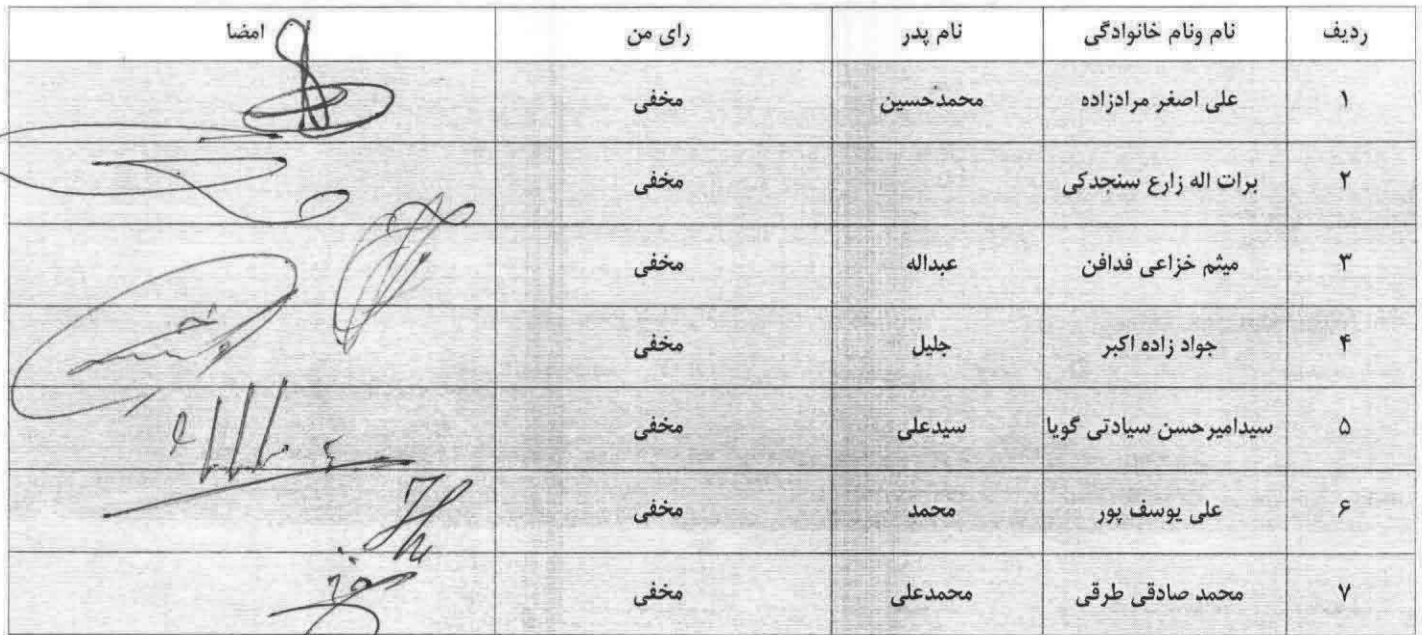 ردیف نام ونام خانوادگی نام پدر رای من امضا
۱ علی اصغر مرادزاده محمدحسین مخفی
۲ برات اله زارع سنجدکی مخفی
۳ میثم خزاعی فدافن عبداله مخفی
۴ جواد زاده اکبر جلیل مخفی
۵ سیدامیرحسن سیادتی گویا سیدعلی مخفی
۶ علی یوسف پور محمد مخفی
۷ محمد صادقی طرقی محمدعلی مخفی